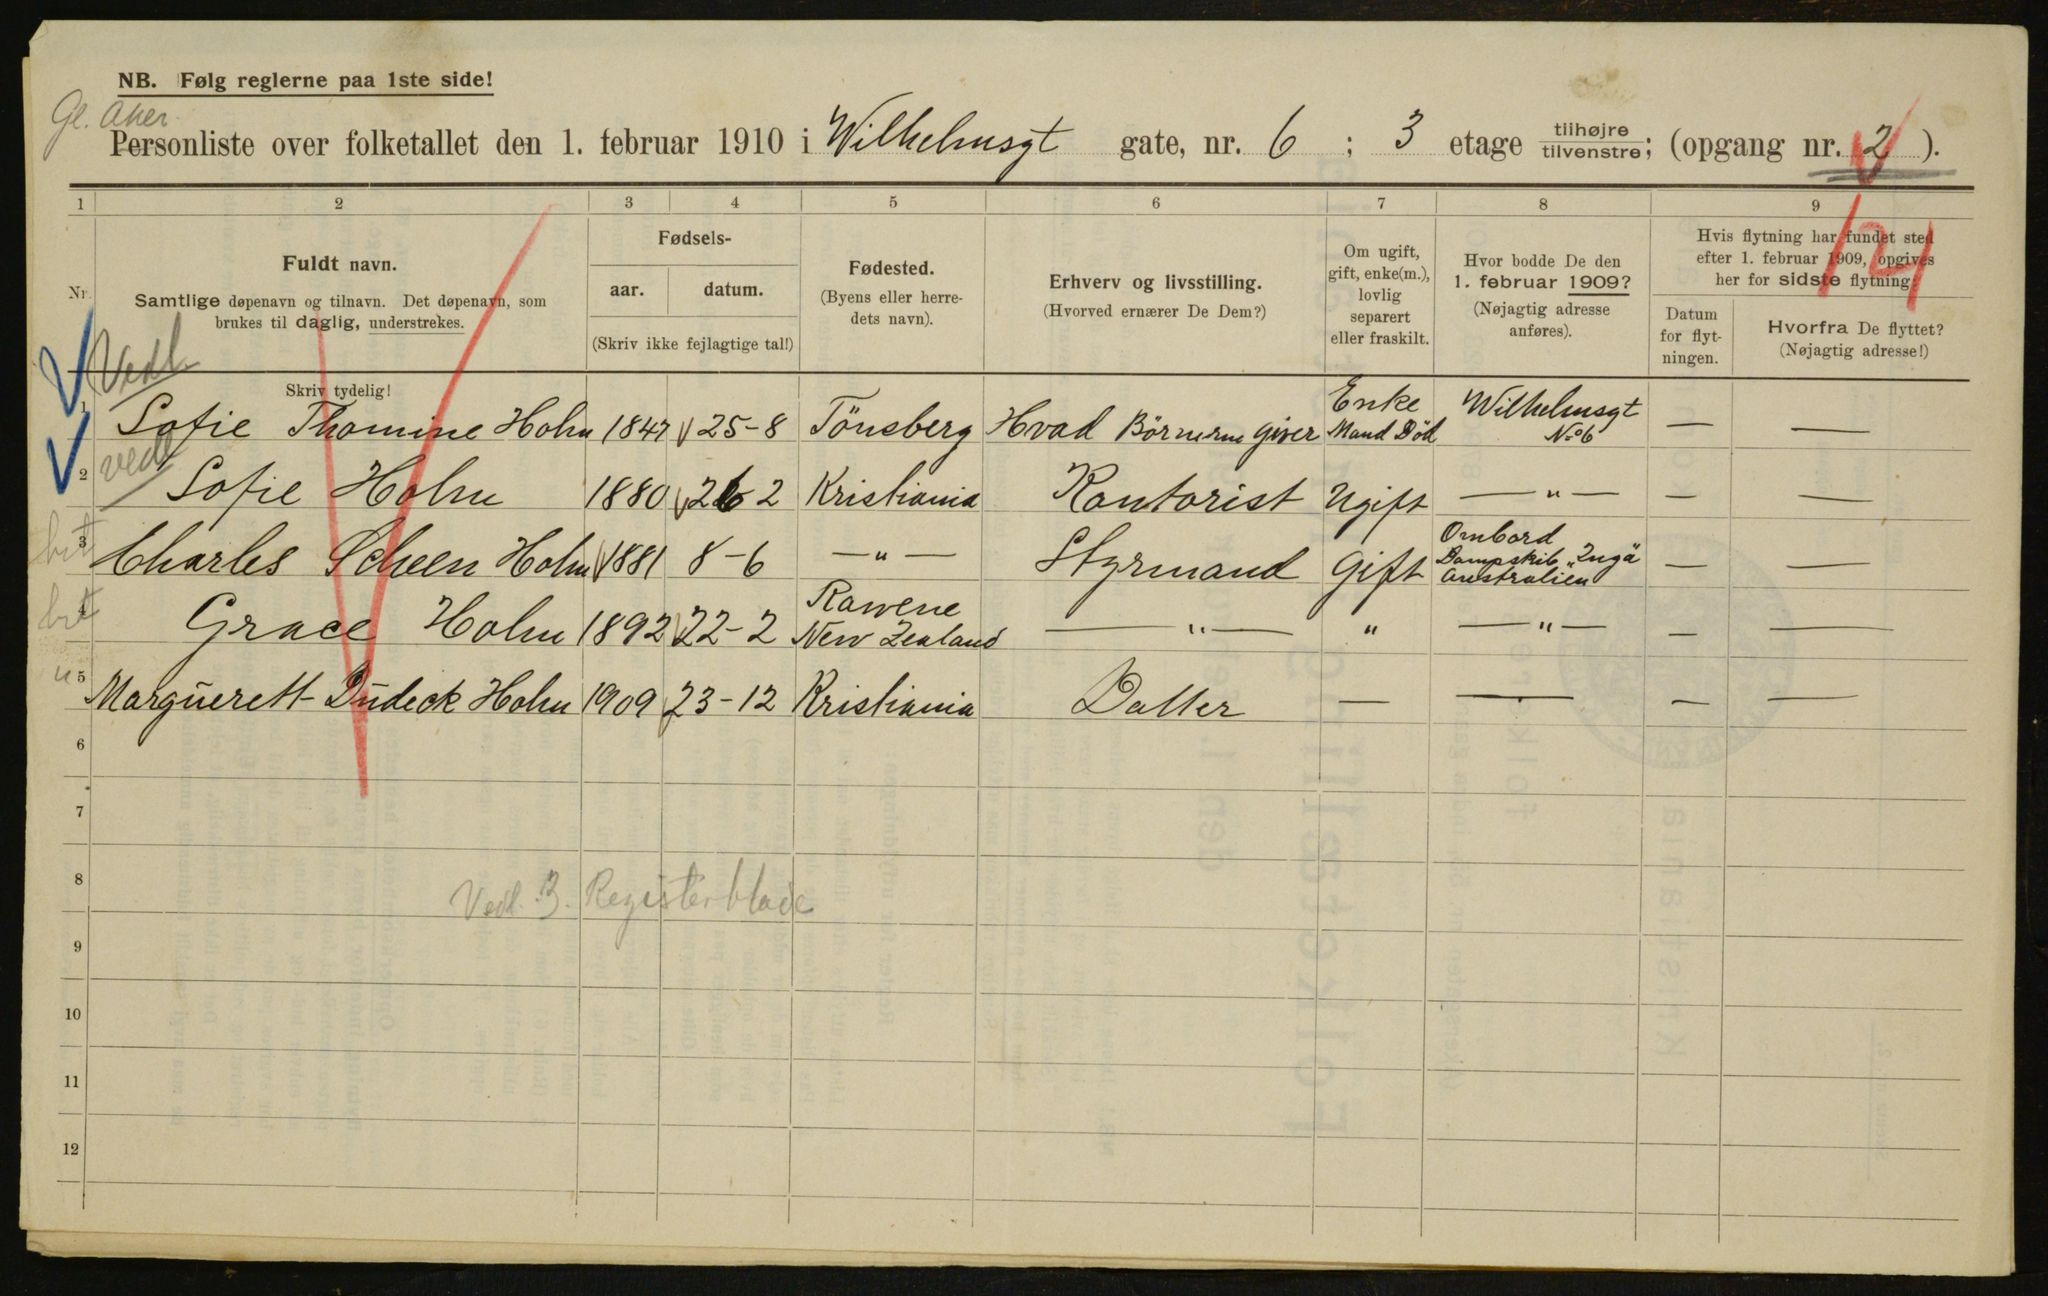 NB. Følg reglerne paa 1ste side!
Gl. Aker.
Personliste over folketallet den 1. februar 1910 i Wilhelmsgt gate, nr. 6 ; 3 etage tilhøjre tilvenstre; (opgang nr. 2 ).
14
1 2 3 4 5 6 7 8 9
Nr.
Fuldt navn.
Samtlige døpenavn og tilnavn. Det døpenavn, som
brukes til daglig, understrekes.
Skriv tydelig!
Fødsels-
aar. datum.
(Skriv ikke fejlagtige tal!)
Fødested.
(Byens eller herre-
dets navn).
Erhverv og livsstilling.
(Hvorved ernærer De Dem?)
Om ugift,
gift, enke(m.),
lovlig
separert
eller fraskilt.
Hvor bodde De den
1. februar 1909?
(Nøjagtig adresse
anføres).
Hvis flytning har fundet sted
efter 1. februar 1909, opgives
her for sidste flytning:
Datum
for flyt-
ningen.
Hvorfra De flyttet?
(Nøjagtig adresse!)
Vedl.
1 Sofie Thomine Holm 1847 25-8 Tönsberg Hvad Börnerne Giver Enke Mand Död Wilhelmsgt No 6 — —
vedl
2 Sofie Holm 1880 26 2 Kristiania Kontorist Ugift — " — — —
3 Charles Scheen Holm 1881 8-6 — " — Styrmand Gift Ombord Dampskib "Inga" Australien — —
4 Grace Holm 1892 22-2 Rawene New Zealand — " — " — " — — —
5 Marguerett Dudeck Holm 1909 23-12 Kristiania Datter — — — —
6
7
8
Vedl. 3. Registerblade
9
10
11
12